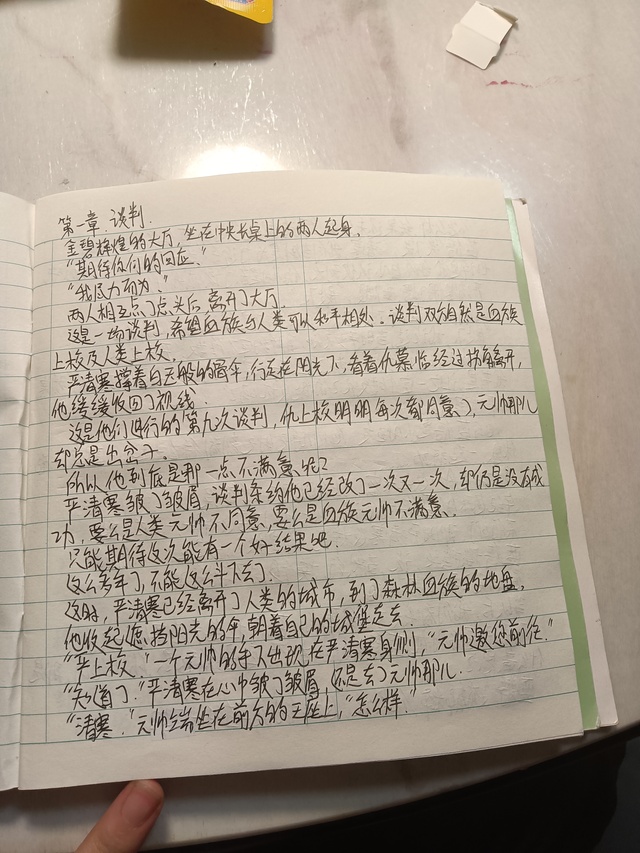 第一章.谈判.
金碧辉煌的大厅,坐在中央长桌上的两人起身.
“期待你们的回应.”
“我尽力而为.”
两人相互点了点头后离开了大厅.
这是一场谈判,希望血族与人类可以和平相处.谈判双方自然是血族
上校及人类上校.
严清寒撑着白色的雨伞,行走在阳光下,看着仇慕临经过拐角离开,
他缓缓收回了视线.
这是他们进行的第九次谈判,仇上校明明每次都同意了,元帅那儿
却总是出岔子.
所以他到底是那一点不满意呢?
严清寒皱了皱眉,谈判条约他已经改了一次又一次,却仍是没有成
功,要么是人类元帅不同意,要么是血族元帅不满意.
只能期待这次能有一个好结果吧.
这么多年了,不能这么斗下去了.
这时,严清寒已经离开了人类的城市,到了森林血族的地盘.
他收起遮挡阳光的伞,朝着自己的城堡走去.
“严上校.”一个元帅的手下出现在严清寒身侧,“元帅邀您前往.”
“知道了.”严清寒在心中皱了皱眉,还是去了元帅那儿.
“清寒.”元帅端坐在前方的王座上,“怎么样.”